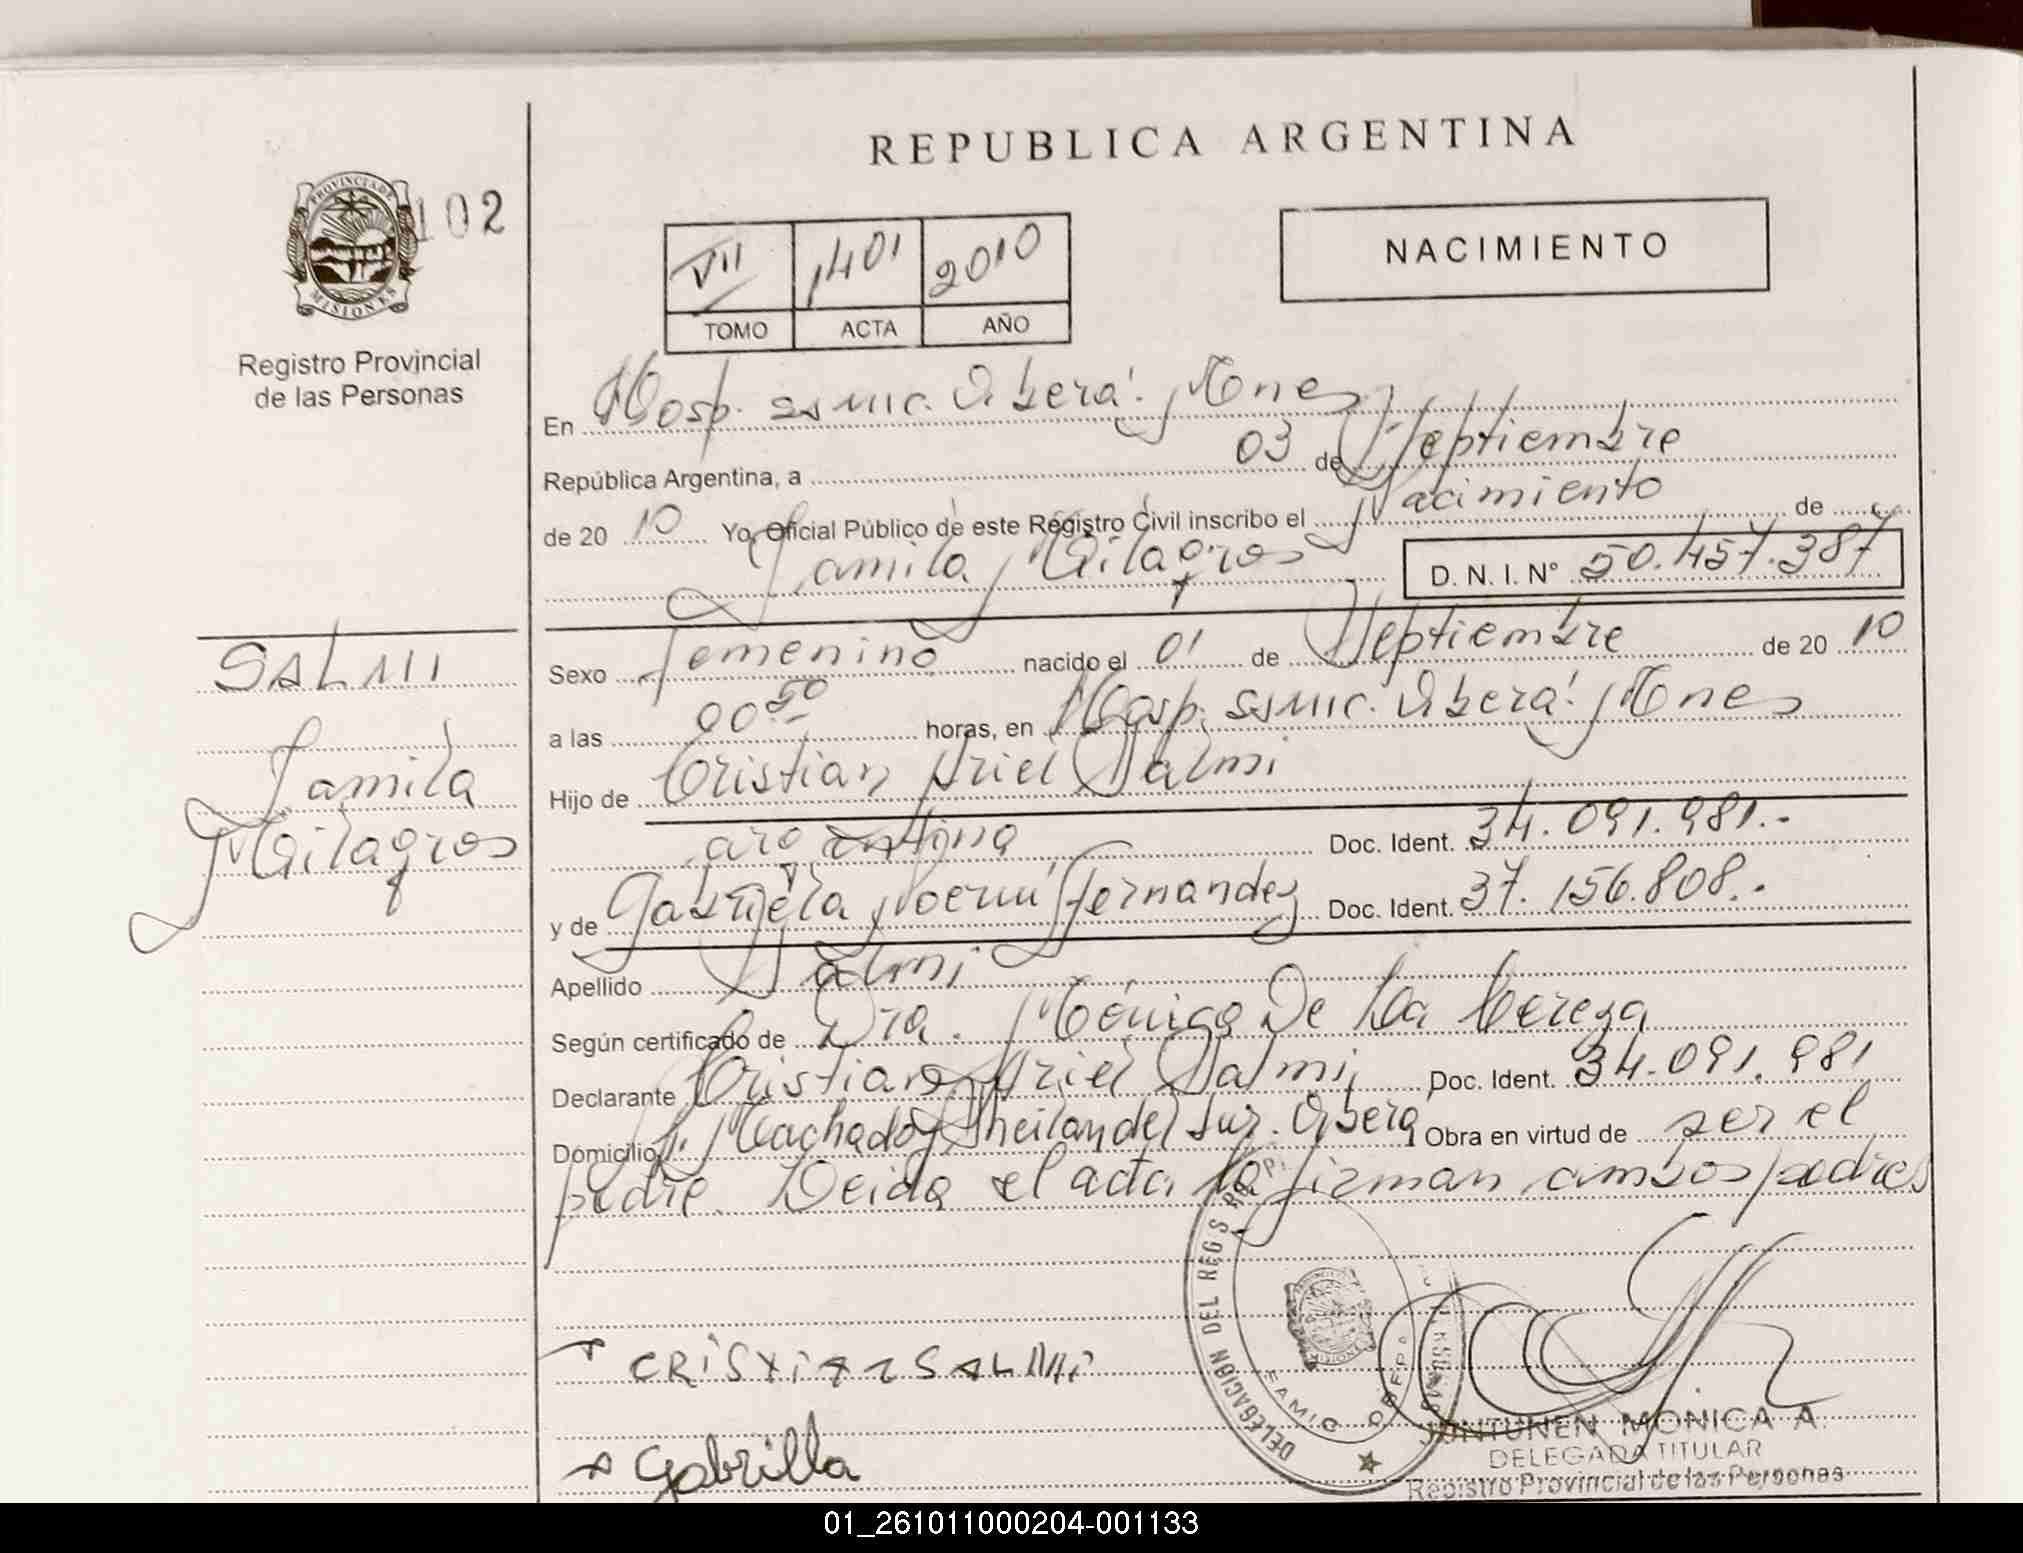 REPUBLICA ARGENTINA
PROVINCIA DE
MISIONES
102
Registro Provincial
de las Personas
VII 1401 2010
TOMO ACTA AÑO
NACIMIENTO
En Hosp. SAMIC. Oberá. Mnes
República Argentina, a 03 de Septiembre
de 20 10 Yo, Oficial Público de este Registro Civil inscribo el Nacimiento de
Jamila Milagros D. N. I. Nº 50.457.387
SALMI
Jamila
Milagros
Sexo Femenino nacido el 01 de Septiembre de 20 10
a las 00 50 horas, en Hosp. SAMIC. Oberá. Mnes
Hijo de Cristian Ariel Salmi
argentino Doc. Ident. 34.091.981.-
y de Gabriela Noemí Fernandez Doc. Ident. 37.156.808.-
Apellido Salmi
Según certificado de Dra. Mónica De La
Declarante Cristian Ariel Salmi Doc. Ident. 34.091.981
Domicilio Machado y del Sur. Oberá Obra en virtud de ser el
padre. Leida el acta la firman ambos padres
CRISTIAN SALMI
Gabrilla
DELEGACIÓN DEL REGIS
SAMIC
JUNTUNEN MONICA A.
DELEGADA TITULAR
Registro Provincial de las Personas
01_261011000204-001133